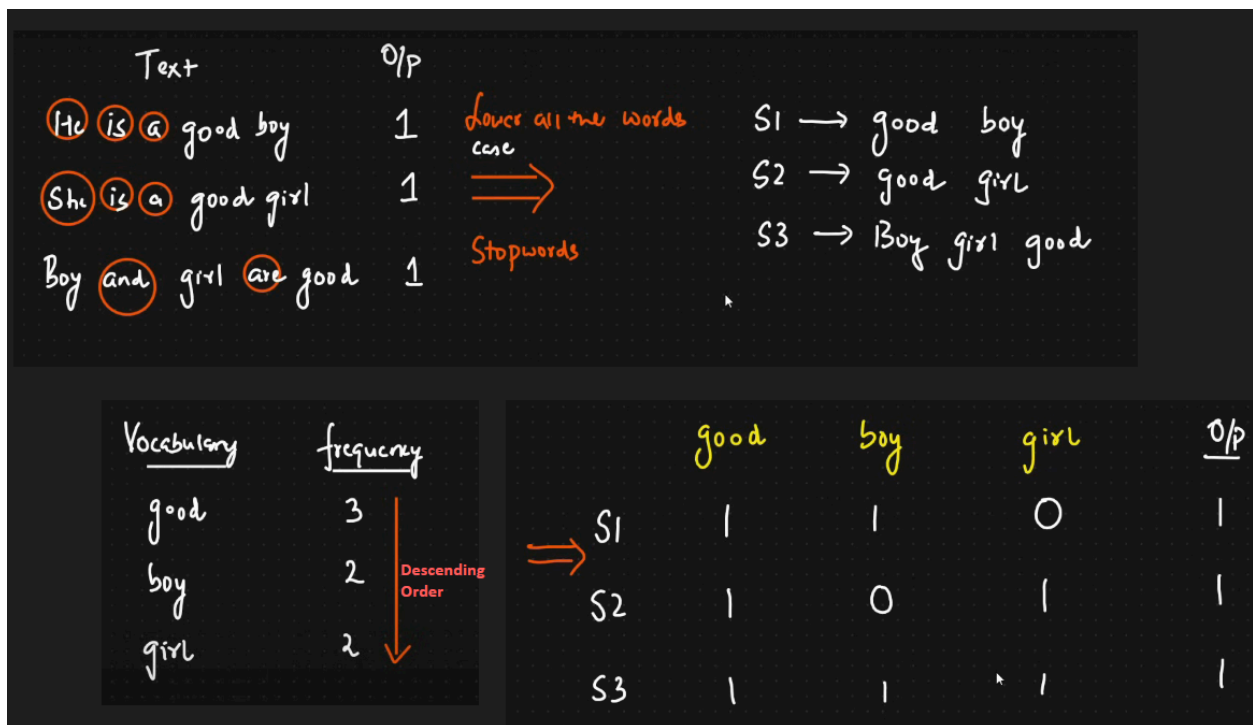 Text O/P
He is a good boy 1
She is a good girl 1
Boy and girl are good 1
Lower all the words
case
Stopwords
S1 → good boy
S2 → good girl
S3 → Boy girl good
Vocabulary frequency
good 3
boy 2
girl 2
Descending
Order
good boy girl O/P
S1 1 1 0 1
S2 1 0 1 1
S3 1 1 1 1